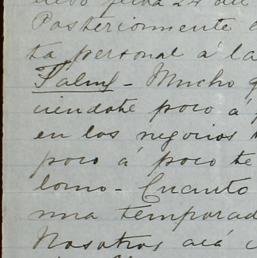 fecha 24 del
Posteriormente
ta personal á la
Mucho
ciendote poco a
en los negocios
poco á poco te
lomo - Cuanto
una temporad
Nosotros acá